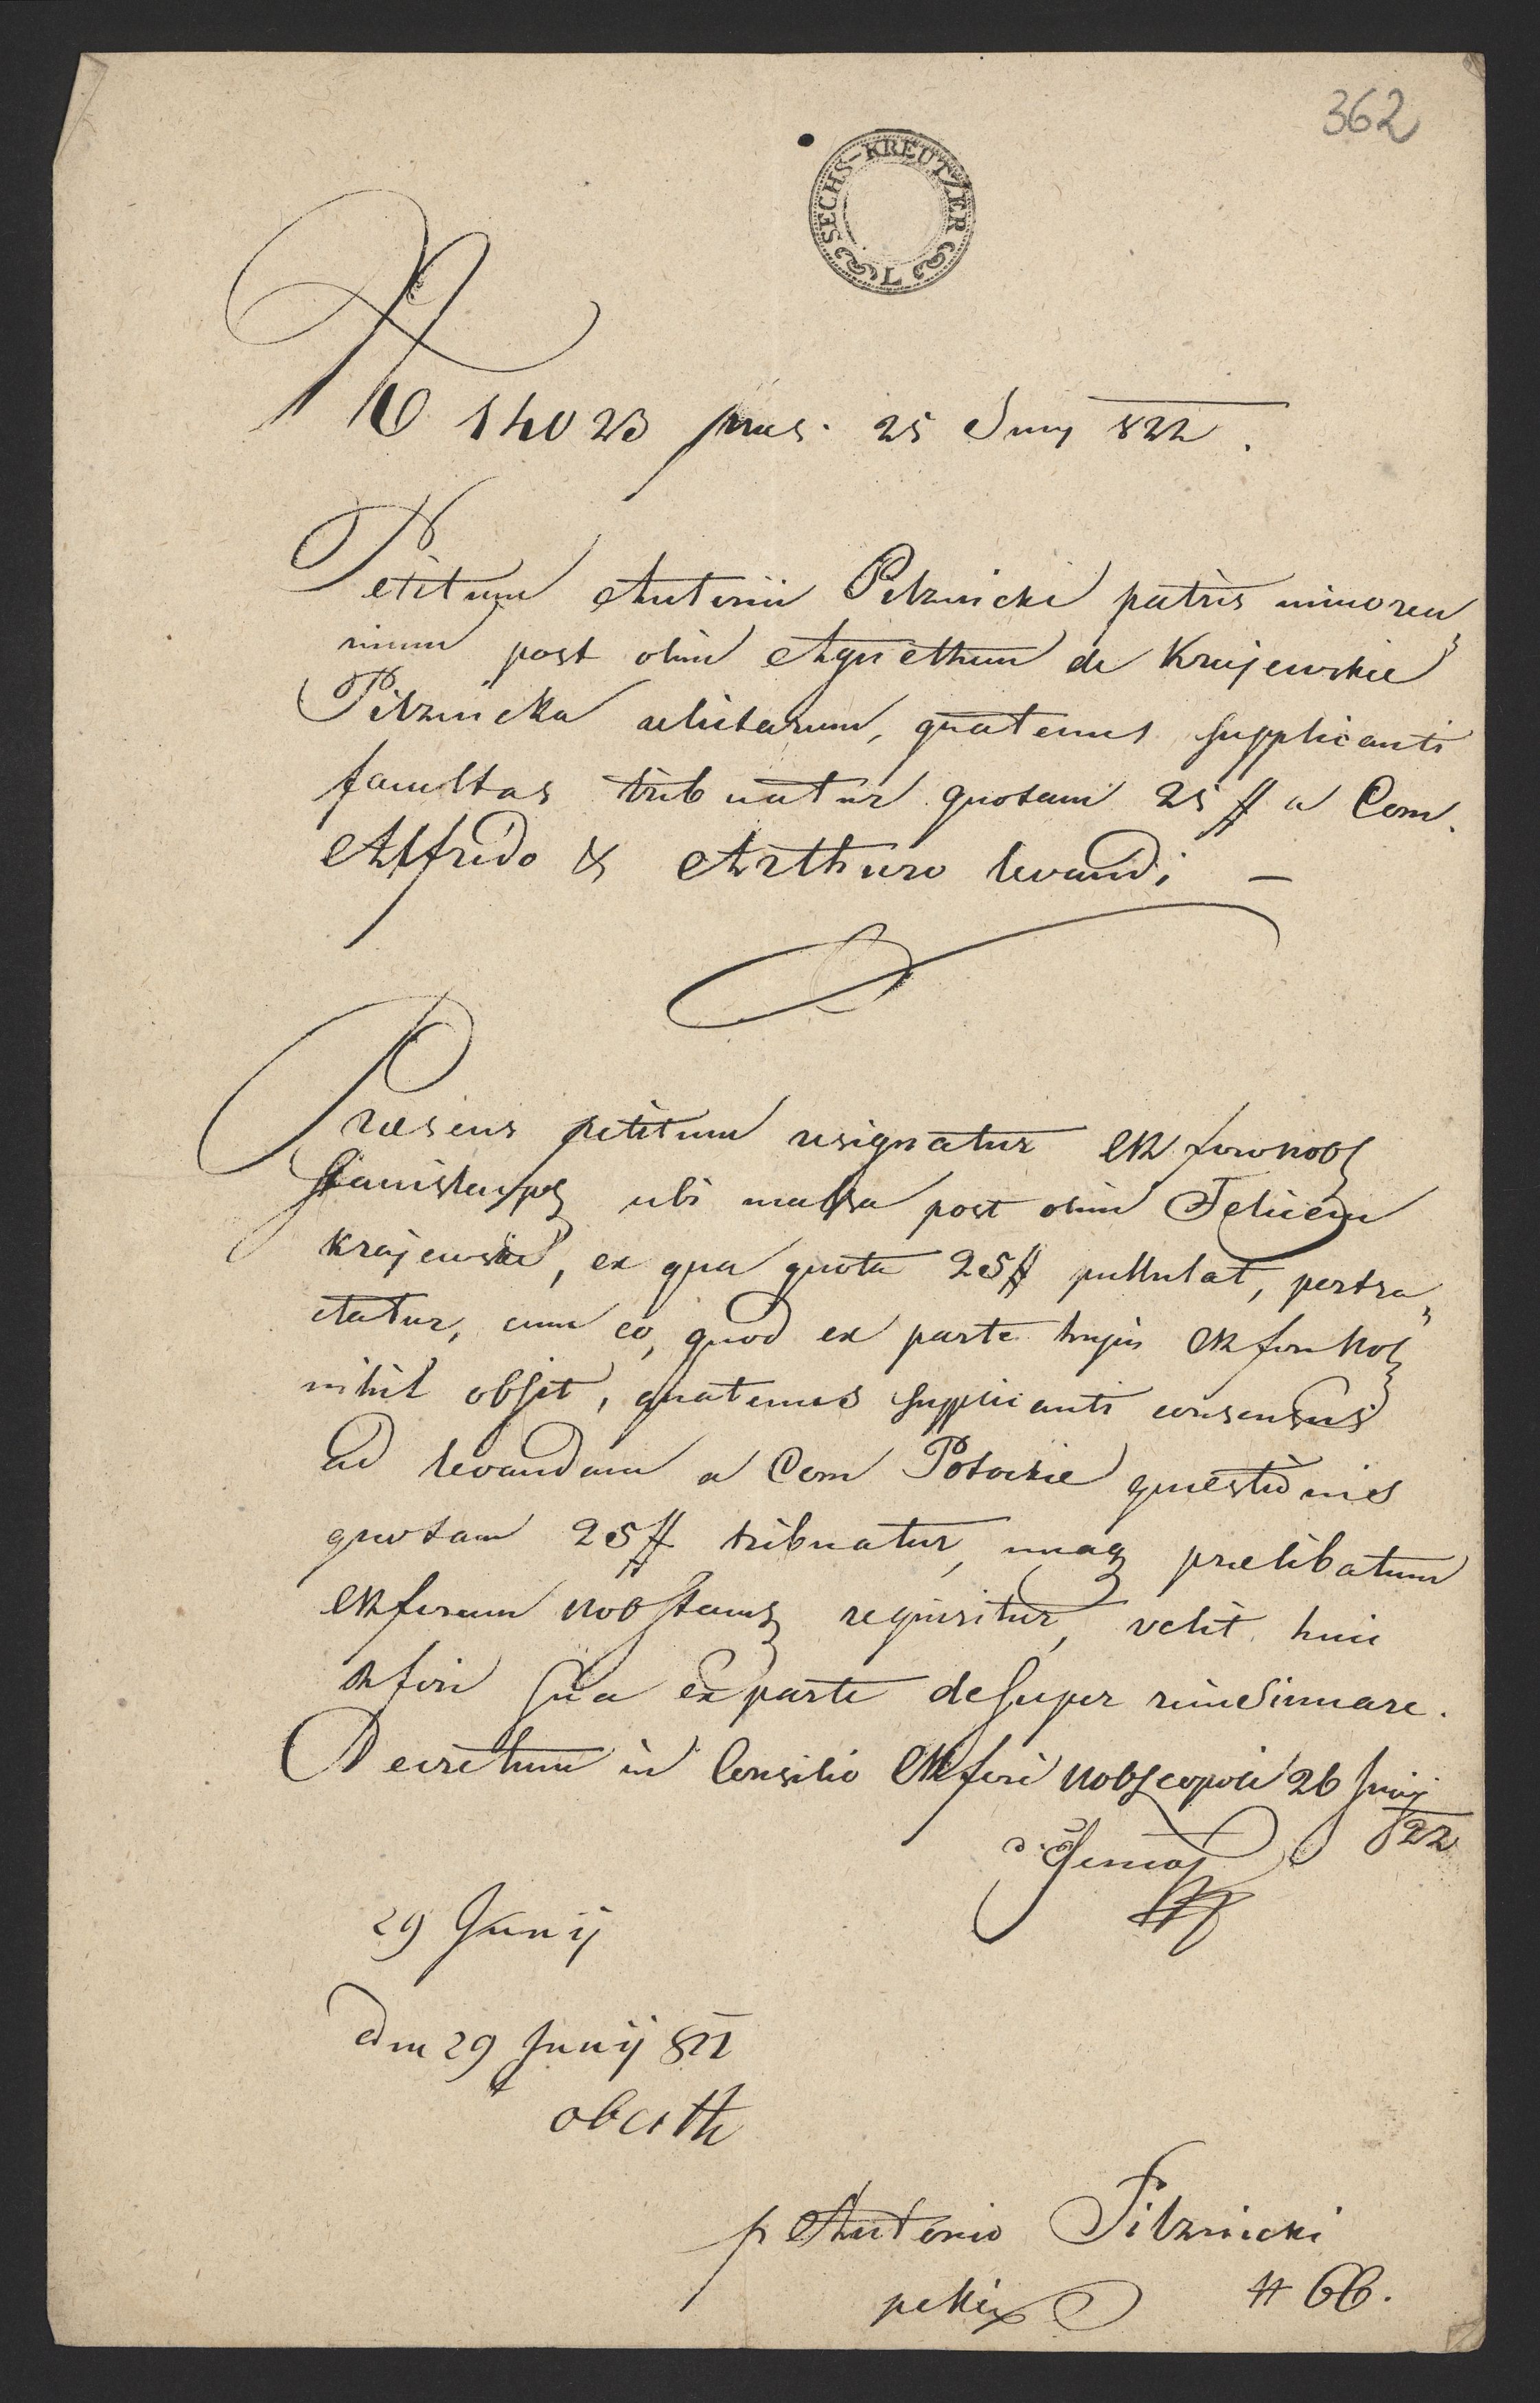 362
SECHS-KREUTZER L
No 14023 praes. 25 Juny 822.
Petitum Antonii Pilznicki patris minoren
nium post olim Agnethum de Krajewskie
Pilznicka relictarum, quatenus supplicanti
facultas tribuatur quotam 25 # a Com.
Alfredo & Arthuro levandi —
Praesens petitum resignatur foronob
Stanislaopol ubi massa post olim Felicem
Krajewski, ex qua quota 25 # pullulat, pertra
ctatur, cum eo, quod ex parte hujus fori Nob
nihil obsit, quatenus supplicanti consensus
ad levandam a Com Potockie quaestionis
quotam 25 # tribuatur, unaq praelibatum
forum Nob Stanis requiritur, velit huic
fori sua ex parte desuper reinsinuare.
Decretum in Consilio fori Nob Leopoli 26 Junij
822
29 Junij
Edm 29 Junij 822
p Antonio Pilznicki
# 66.